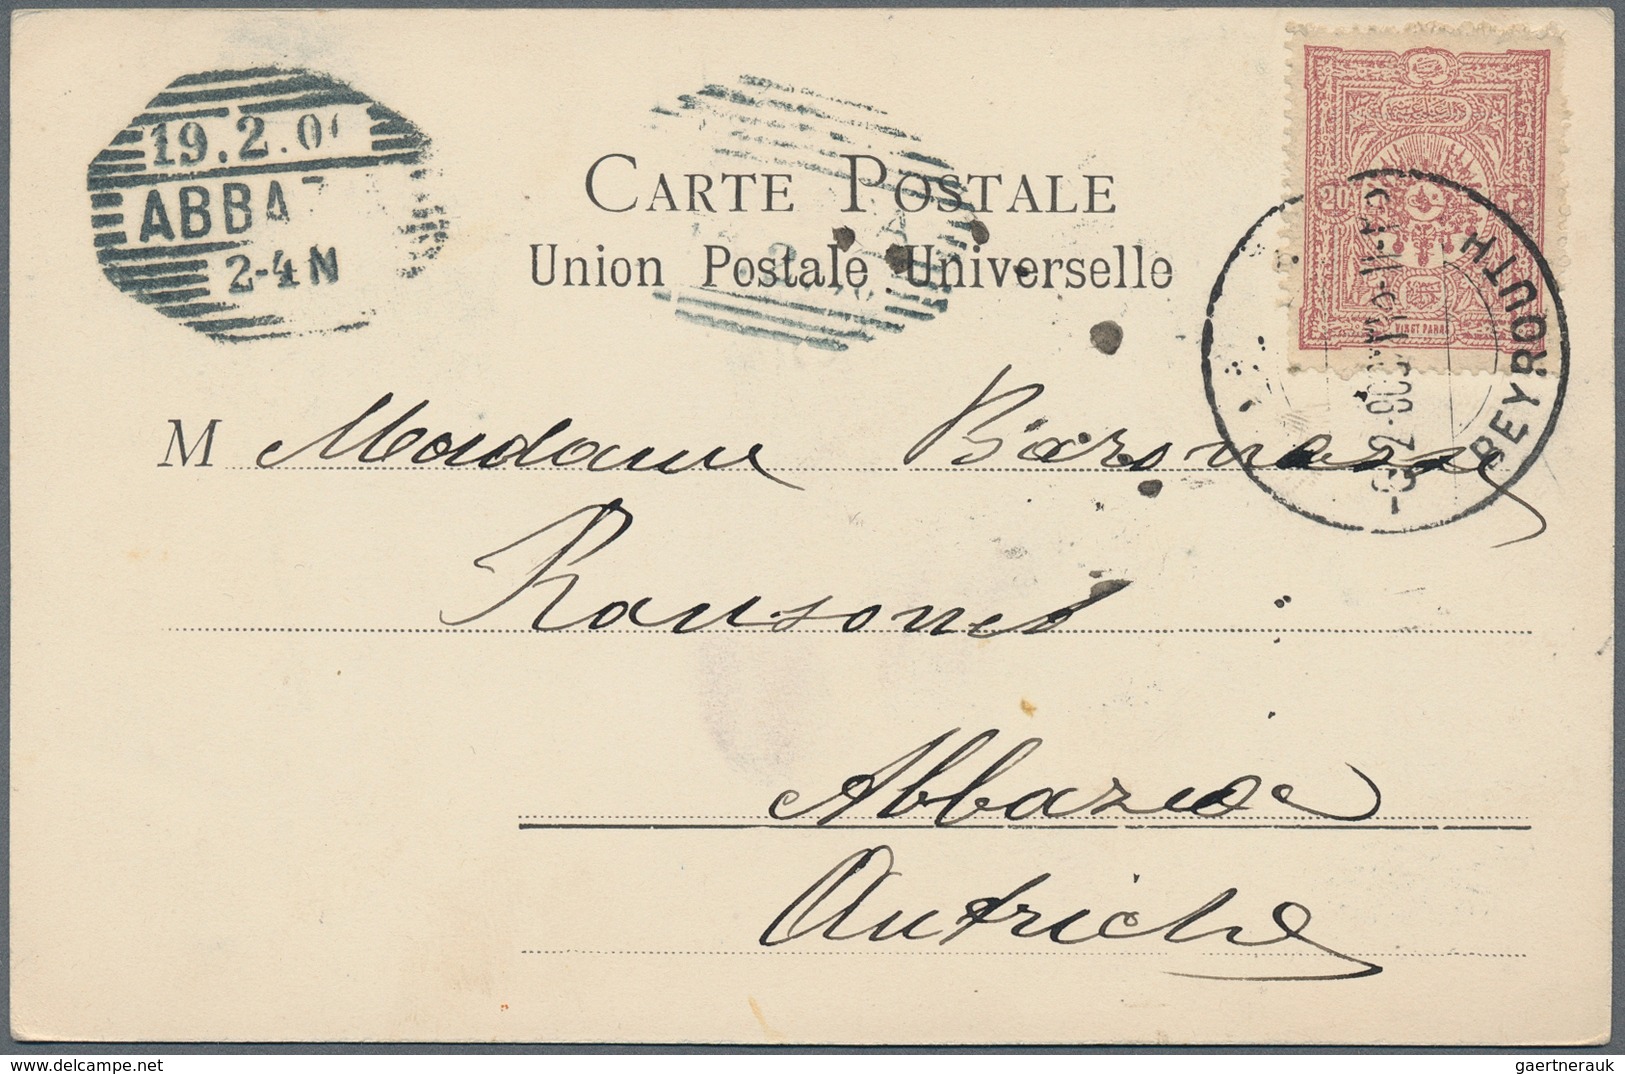 19.2.0
ABBA
2-4 N
CARTE POSTALE
Union Postale Universelle
20
VINGT PARAS
BEYROUTH
M Madame Baronesse
Ransonet
Abbazia
Autriche
gaertnerauk